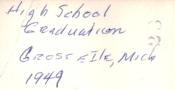 High School
Graduation
Grosse Ile, Mich
1949